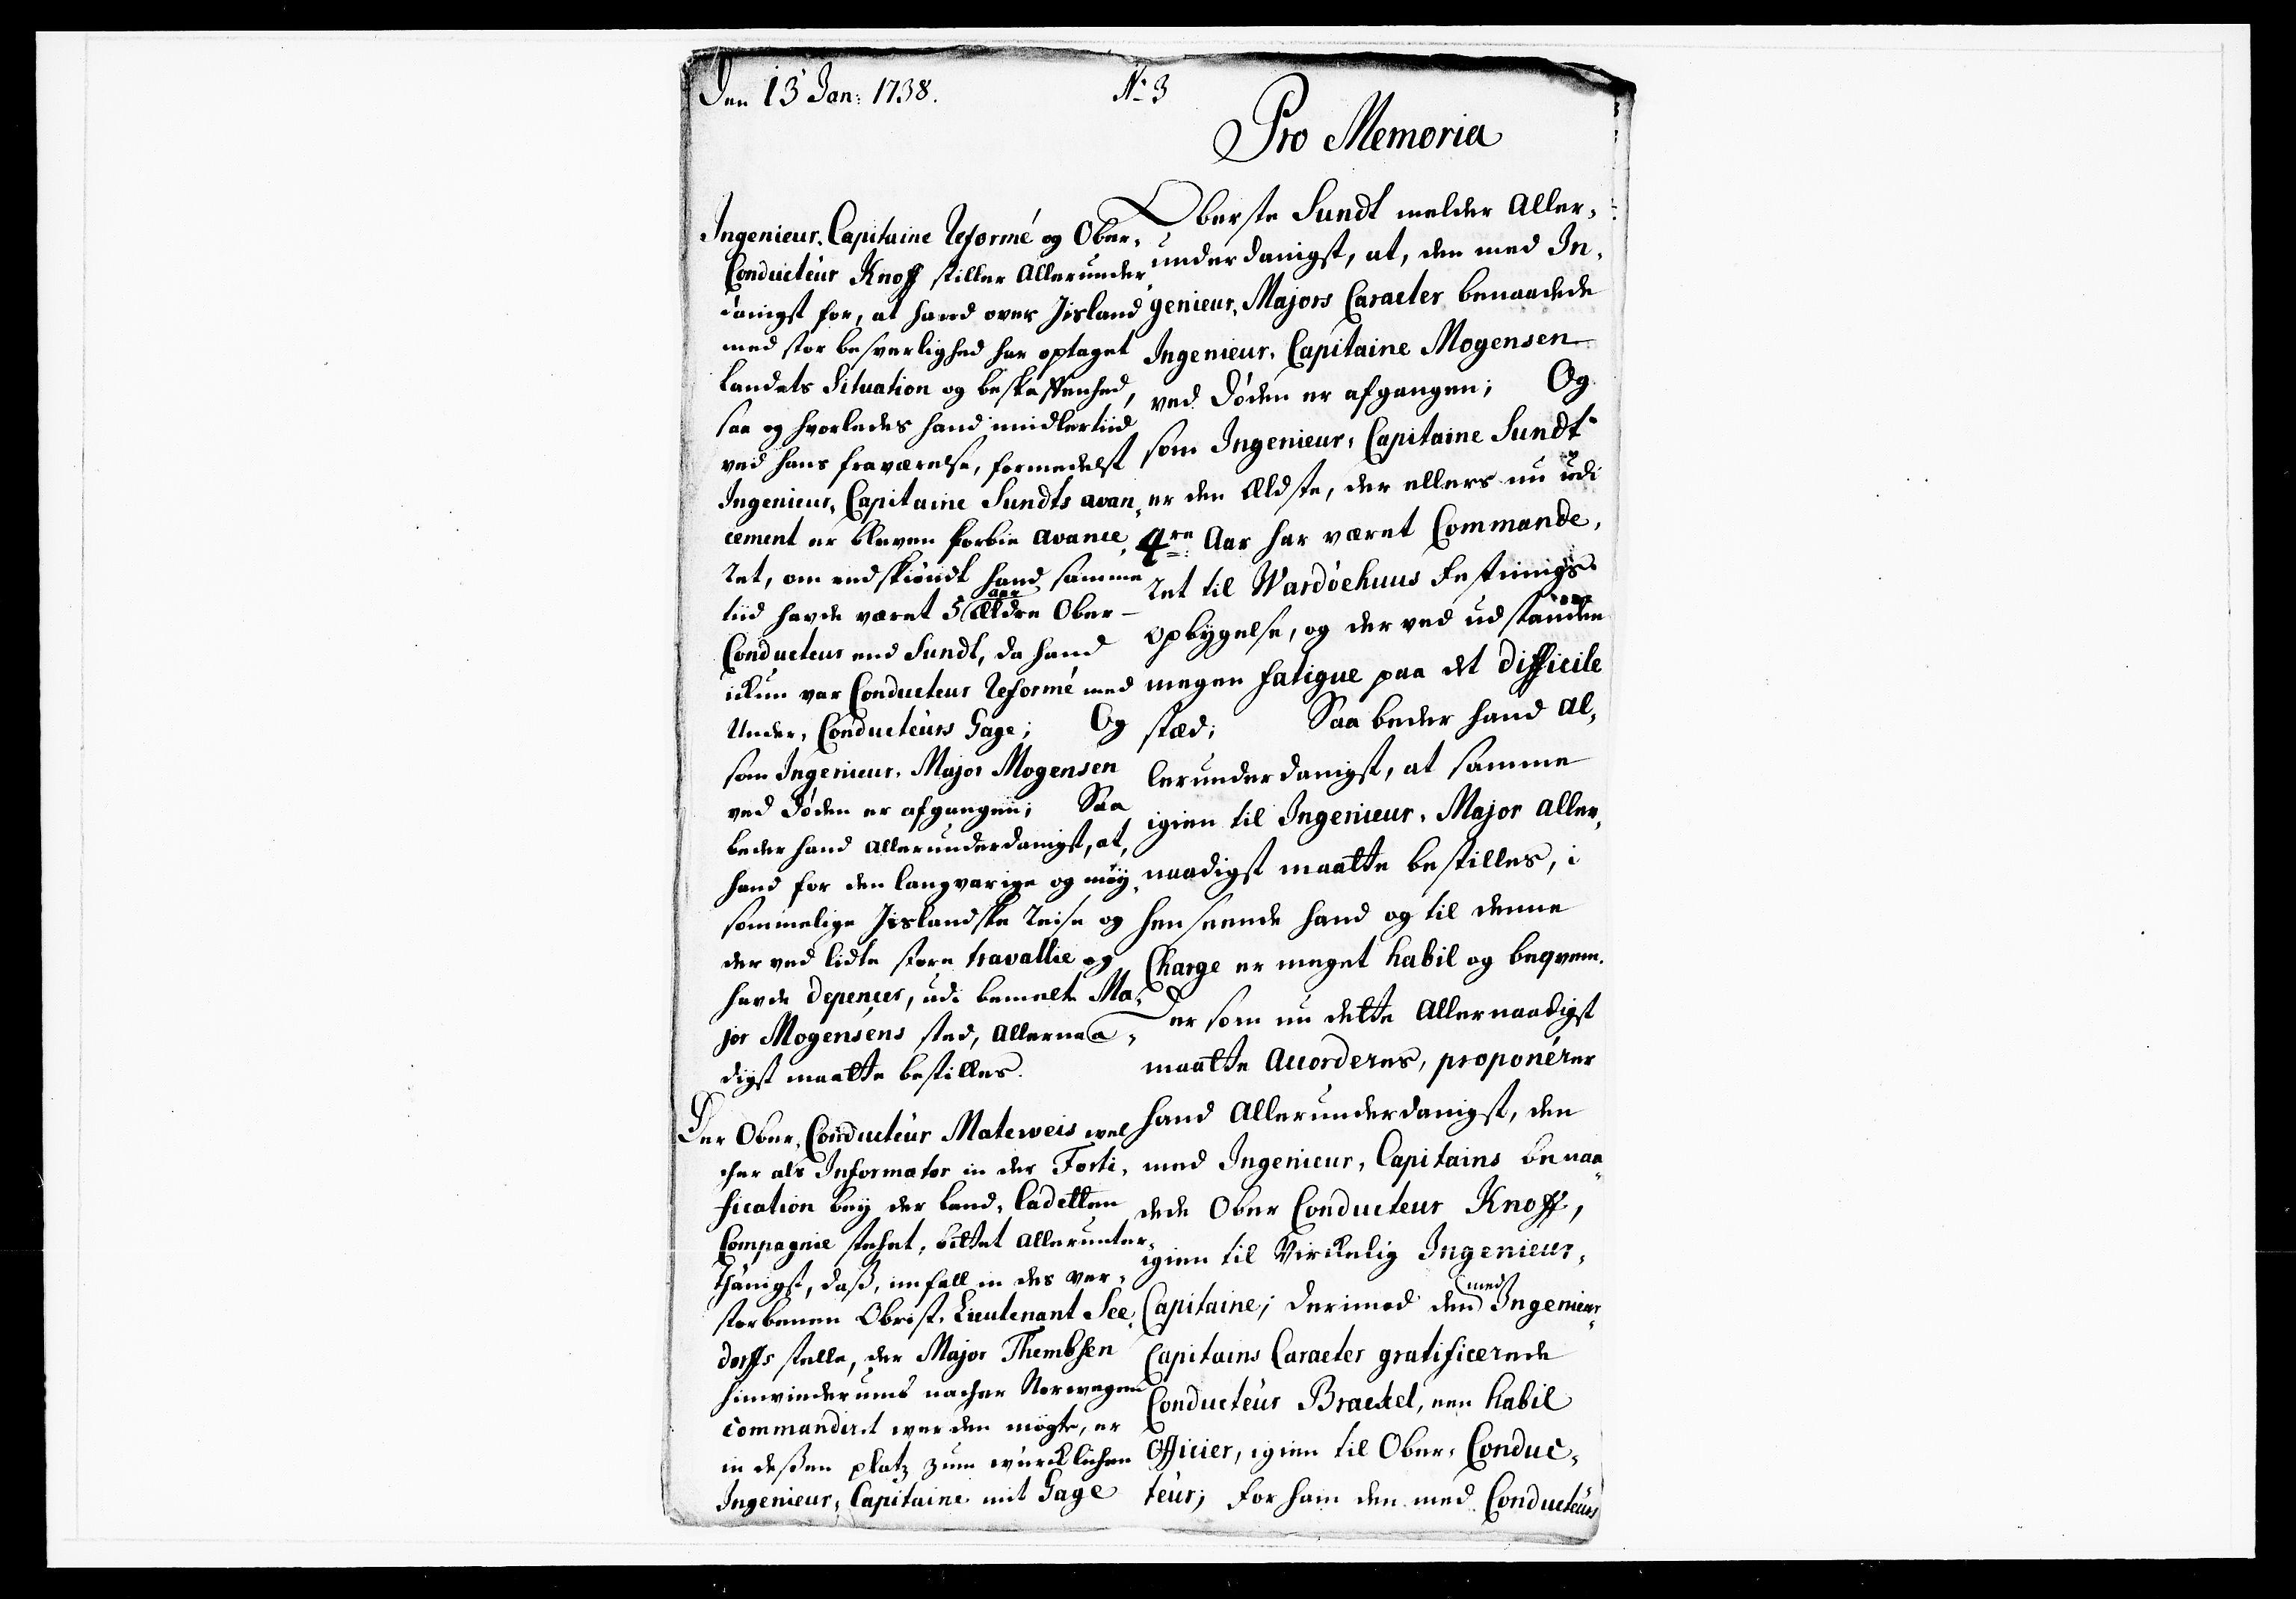 Den 13 Jan: 1738.
No 3
Pro Memoria
Ingenieur, Capitaine Reformé og Ober,
Conducteur Knoff stiller Allerunder,
danigst for, at hand over Jisland
med stor besverlighed har optaget
Landets Situation og beskaffenhed,
saa og hvorledes hand imidlertiid
ved hans fraværelse, formedelst
Ingenieur, Capitaine Sundts avan,
cement er bleven forbie avance,
ret, om endskiöndt hand samme
tiid havde været 5 aar Ældre Ober-
Conducteur end Sundt, da hand
ickun var Conducteur Reformé med
Under, Conducteurs Gage; Og
som Ingenieur, Major Mogensen
ved Döden er afgangen; Saa
beder hand allerunderdanigst, at,
hand for den langvarige og möy,
sommelige Jislandske Reise og
der ved lidte store travallie og
havde depencer, udi bemelte Ma,
jor Mogensens sted, Allernaa,
digst maatte bestilles.
Der Ober, Conducteur Mateweis wel
cher als Informator in der Forti,
fication bey der Land, Cadetten
Compagnie stehet, bittet allerunter,
thänigst, daß, im fall in des ver,
storbenen Obrist, Lieutenant See,
dorffs stelle, der Major Thembsen
hinwiederumb nacher Norwegen
commandiret werden mögte, er
in deßen platz zum würcklichen
Ingenieur, Capitaine mit Gage
Oberste Sundt melder Aller,
underdanigst, at, den med In,
genieur, Majors Caracter benaadede
Ingenieur, Capitaine Mogensen
ved Döden er afgangen; Og
som Ingenieur, Capitaine Sundt
er den Ældste, der ellers nu udi
4re Aar har været Commande,
ret til Wardöehuus Festnings
opbygelse, og der ved udstanden
megen fatigue paa det difficile
stæd; Saa beder hand al,
lerunderdanigst, at samme
igien til Ingenieur, Major aller,
naadigst maatte bestilles, i
henseende hand og til denne
Charge er meget habil og beqvem.
Der som nu dette Allernaadigst
maatte Accorderes, proponérer
hand Allerunderdanigst, den
med Ingenieur, Capitains benaa,
dede Ober Conducteur Knoff,
igien til Virckelig Ingenieur,
Capitaine; derimod den med Ingenieur,
Capitains Caracter gratificerede
Conducteur Brackel, een habil
Officier, igien til Ober, Conduc,
teur; for ham den med Conducteurs